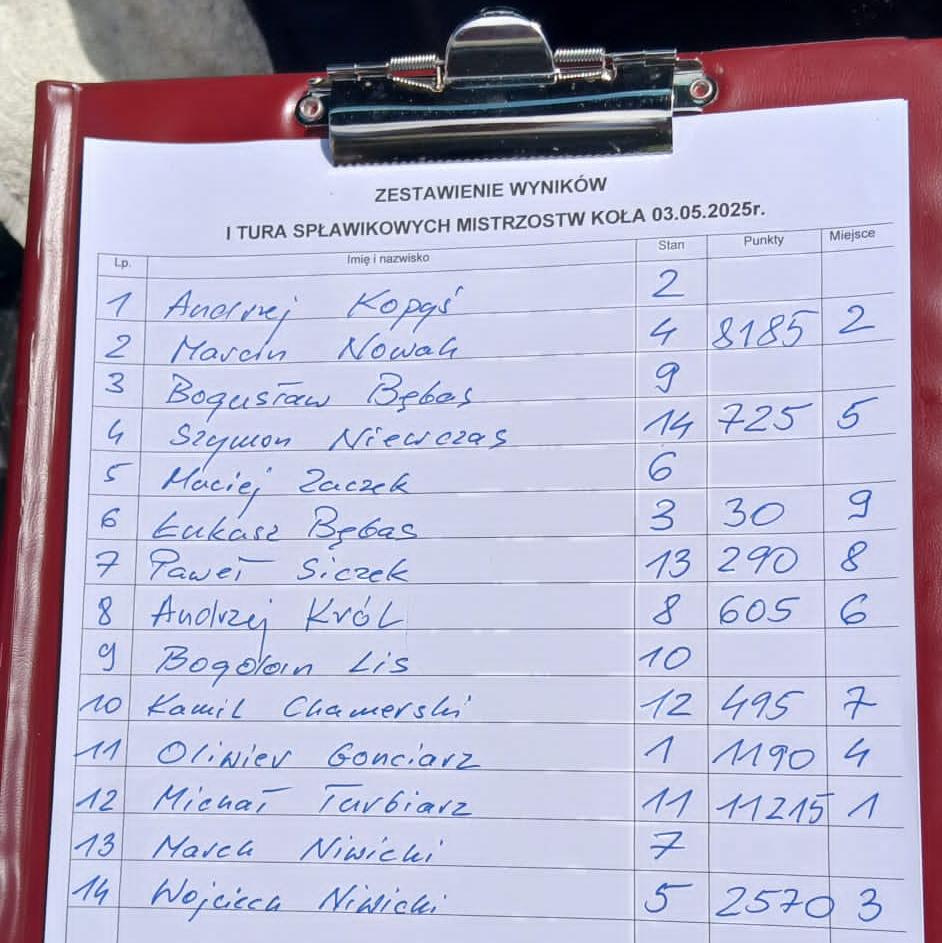 ZESTAWIENIE WYNIKÓW
I TURA SPŁAWIKOWYCH MISTRZOSTW KOŁA 03.05.2025r.
Lp. Imię i nazwisko Stan Punkty Miejsce
1 Andrzej Kopyś 2
2 Marcin Nowak 4 8185 2
3 Bogusław Bębas 9
4 Szymon Niewczas 14 725 5
5 Maciej Zaczek 6
6 Łukasz Bębas 3 30 9
7 Paweł Siczek 13 290 8
8 Andrzej Król 8 605 6
9 Bogdan Lis 10
10 Kamil Chamerski 12 495 7
11 Oliwier Gonciarz 1 1190 4
12 Michał Tarbiarz 11 11215 1
13 Marek Niwicki 7
14 Wojciech Niwicki 5 2570 3